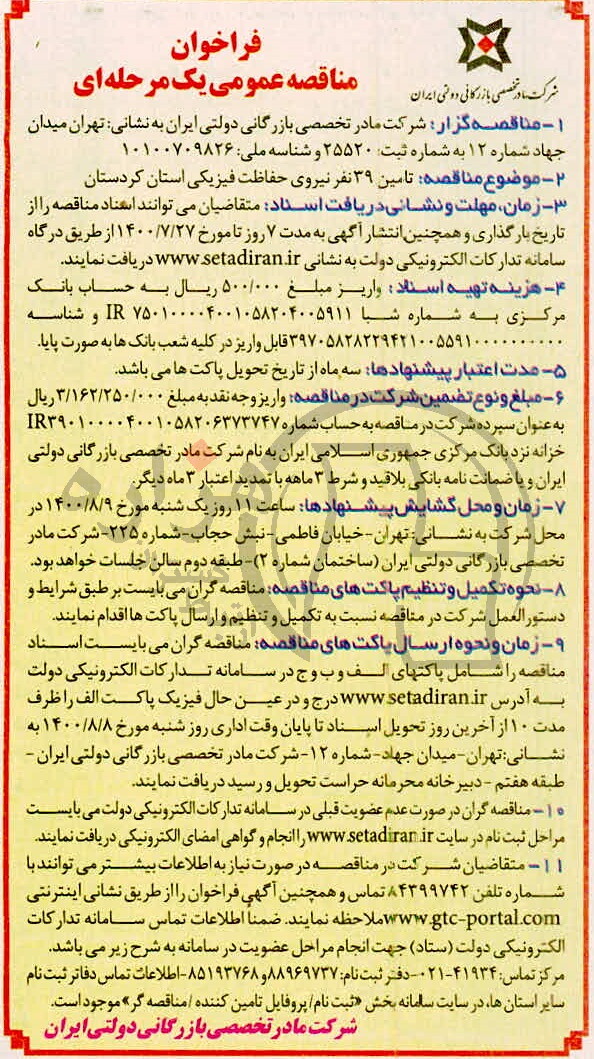 فراخوان
مناقصه عمومی یک مرحله ای
شرکت مادر تخصصی بازرگانی دولتی ایران
۱- مناقصه گزار: شرکت مادر تخصصی بازرگانی دولتی ایران به نشانی: تهران میدان
جهاد شماره ۱۲ به شماره ثبت: ۲۵۵۲۰ و شناسه ملی: ۱۰۱۰۰۷۰۹۸۲۶
۲- موضوع مناقصه: تامین ۳۹ نفر نیروی حفاظت فیزیکی استان کردستان
۳- زمان، مهلت و نشانی دریافت اسناد: متقاضیان می توانند اسناد مناقصه را از
تاریخ بارگذاری و همچنین انتشار آگهی به مدت ۷ روز تا مورخ ۱۴۰۰/۷/۲۷ از طریق درگاه
سامانه تدارکات الکترونیکی دولت به نشانی www.setadiran.ir دریافت نمایند.
۴- هزینه تهیه اسناد: واریز مبلغ ۵۰۰/۰۰۰ ریال به حساب بانک
مرکزی به شماره شبا IR ۷۵۰۱۰۰۰۰۴۰۰۱۰۵۸۲۰۴۰۰۵۹۱۱ و شناسه
۳۹۷۰۵۸۲۸۲۲۹۴۲۱۰۰۵۵۹۱۰۰۰۰۰۰۰۰۰۰ قابل واریز در کلیه شعب بانک ها به صورت پایا.
۵- مدت اعتبار پیشنهادها: سه ماه از تاریخ تحویل پاکت ها می باشد.
۶- مبلغ و نوع تضمین شرکت در مناقصه: واریز وجه نقد به مبلغ ۳/۱۶۲/۲۵۰/۰۰۰ ریال
به عنوان سپرده شرکت در مناقصه به حساب شماره IR۳۹۰۱۰۰۰۰۴۰۰۱۰۵۸۲۰۶۳۷۳۷۴۷
خزانه نزد بانک مرکزی جمهوری اسلامی ایران به نام شرکت مادر تخصصی بازرگانی دولتی
ایران و یا ضمانت نامه بانکی بلاقید و شرط ۳ ماهه با تمدید اعتبار ۳ ماه دیگر.
۷- زمان و محل گشایش پیشنهادها: ساعت ۱۱ روز یک شنبه مورخ ۱۴۰۰/۸/۹ در
محل شرکت به نشانی: تهران- خیابان فاطمی- نبش حجاب- شماره ۲۲۵- شرکت مادر
تخصصی بازرگانی دولتی ایران (ساختمان شماره ۲)- طبقه دوم سالن جلسات خواهد بود.
۸- نحوه تکمیل و تنظیم پاکت های مناقصه: مناقصه گران می بایست بر طبق شرایط و
دستورالعمل شرکت در مناقصه نسبت به تکمیل و تنظیم و ارسال پاکت ها اقدام نمایند.
۹- زمان و نحوه ارسال پاکت های مناقصه: مناقصه گران می بایست اسناد
مناقصه را شامل پاکتهای الف و ب و ج در سامانه تدارکات الکترونیکی دولت
به آدرس www.setadiran.ir درج و در عین حال فیزیک پاکت الف را ظرف
مدت ۱۰ از آخرین روز تحویل اسناد تا پایان وقت اداری روز شنبه مورخ ۱۴۰۰/۸/۸ به
نشانی: تهران- میدان جهاد- شماره ۱۲- شرکت مادر تخصصی بازرگانی دولتی ایران -
طبقه هفتم - دبیرخانه محرمانه حراست تحویل و رسید دریافت نمایند.
۱۰- مناقصه گران در صورت عدم عضویت قبلی در سامانه تدارکات الکترونیکی دولت می بایست
مراحل ثبت نام در سایت www.setadiran.ir را انجام و گواهی امضای الکترونیکی دریافت نمایند.
۱۱- متقاضیان شرکت در مناقصه در صورت نیاز به اطلاعات بیشتر می توانند با
شماره تلفن ۸۴۳۹۹۷۴۲ تماس و همچنین آگهی فراخوان را از طریق نشانی اینترنتی
www.gtc-portal.com ملاحظه نمایند. ضمناً اطلاعات تماس سامانه تدارکات
الکترونیکی دولت (ستاد) جهت انجام مراحل عضویت در سامانه به شرح زیر می باشد.
مرکز تماس: ۴۱۹۳۴-۰۲۱- دفتر ثبت نام: ۸۸۹۶۹۷۳۷ و ۸۵۱۹۳۷۶۸- اطلاعات تماس دفاتر ثبت نام
سایر استان ها، در سایت سامانه بخش «ثبت نام/ پروفایل تامین کننده /مناقصه گر» موجود است.
شرکت مادر تخصصی بازرگانی دولتی ایران